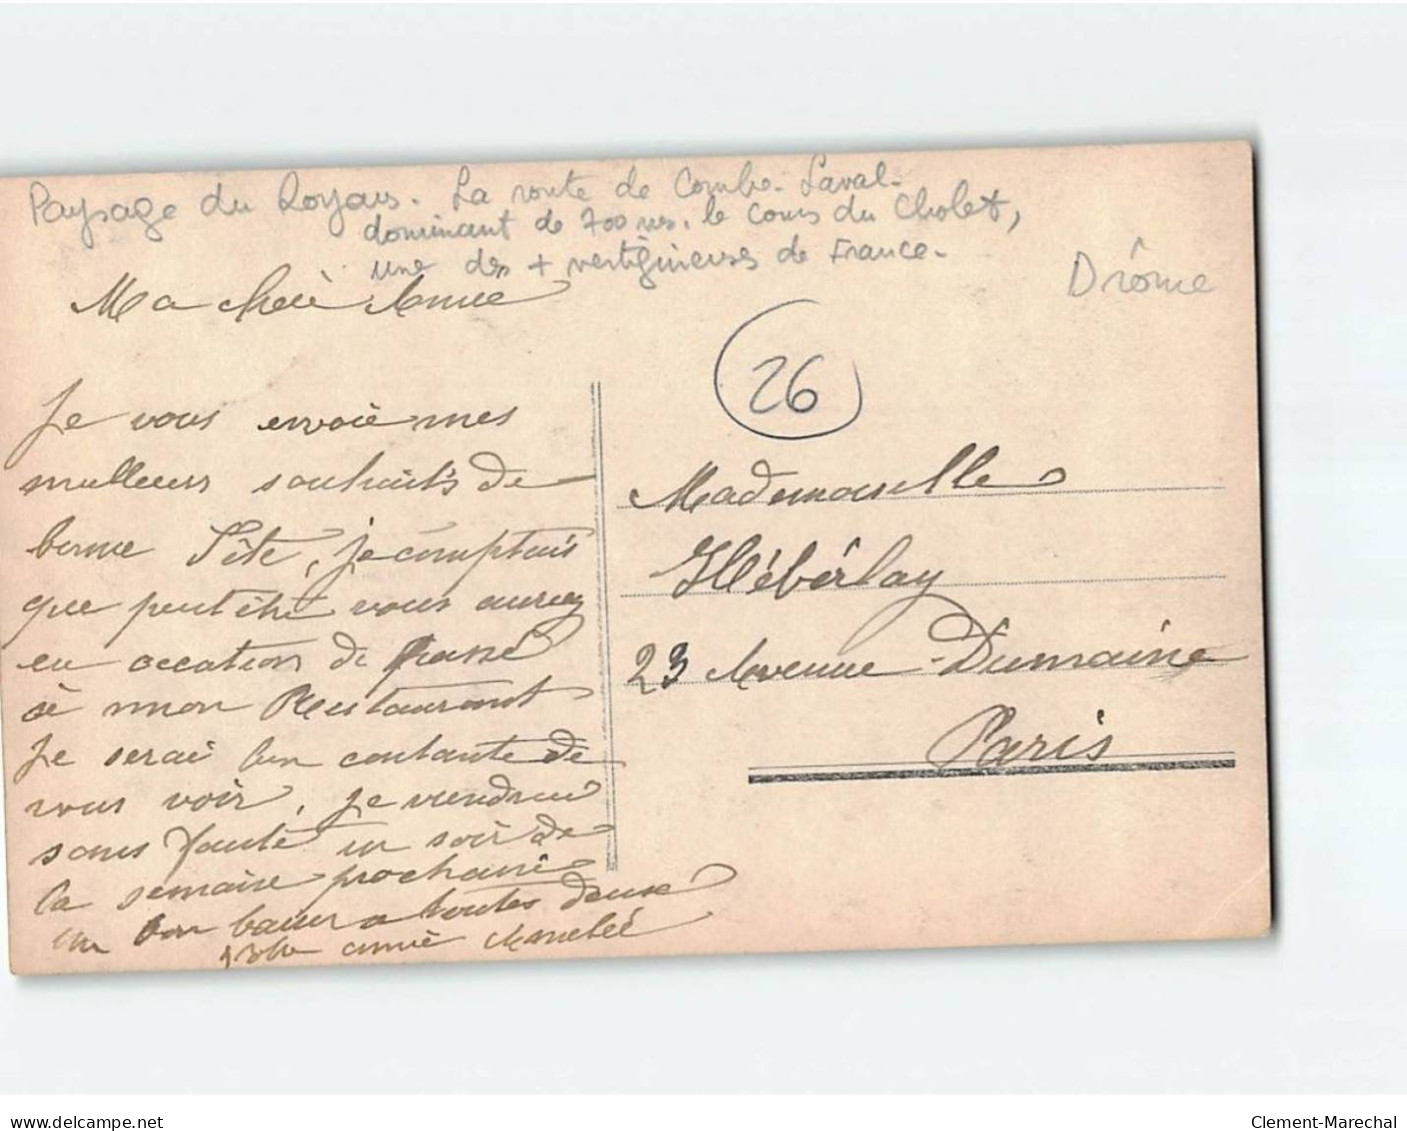 Paysage du Royans. La route de Combe-Laval-
dominant de 700 m. le cours du Cholet,
une des + vertigineuses de France.
Drôme
26
Ma cheré Annie
Je vous envoie mes
meilleurs souhaits de
bonne Fête, je comptais
que peut être vous auriez
eu occation de passé
à mon Restaurant
Je serai bien contante de
vous voir, je viendrai
sans faute un soir de
la semaine prochaine
un bon baiser a toutes deux
votre amie Amelée
Mademoiselle
Hébérlay
23 Avenue Dumaine
Paris
www.delcampe.net
Clement-Marechal